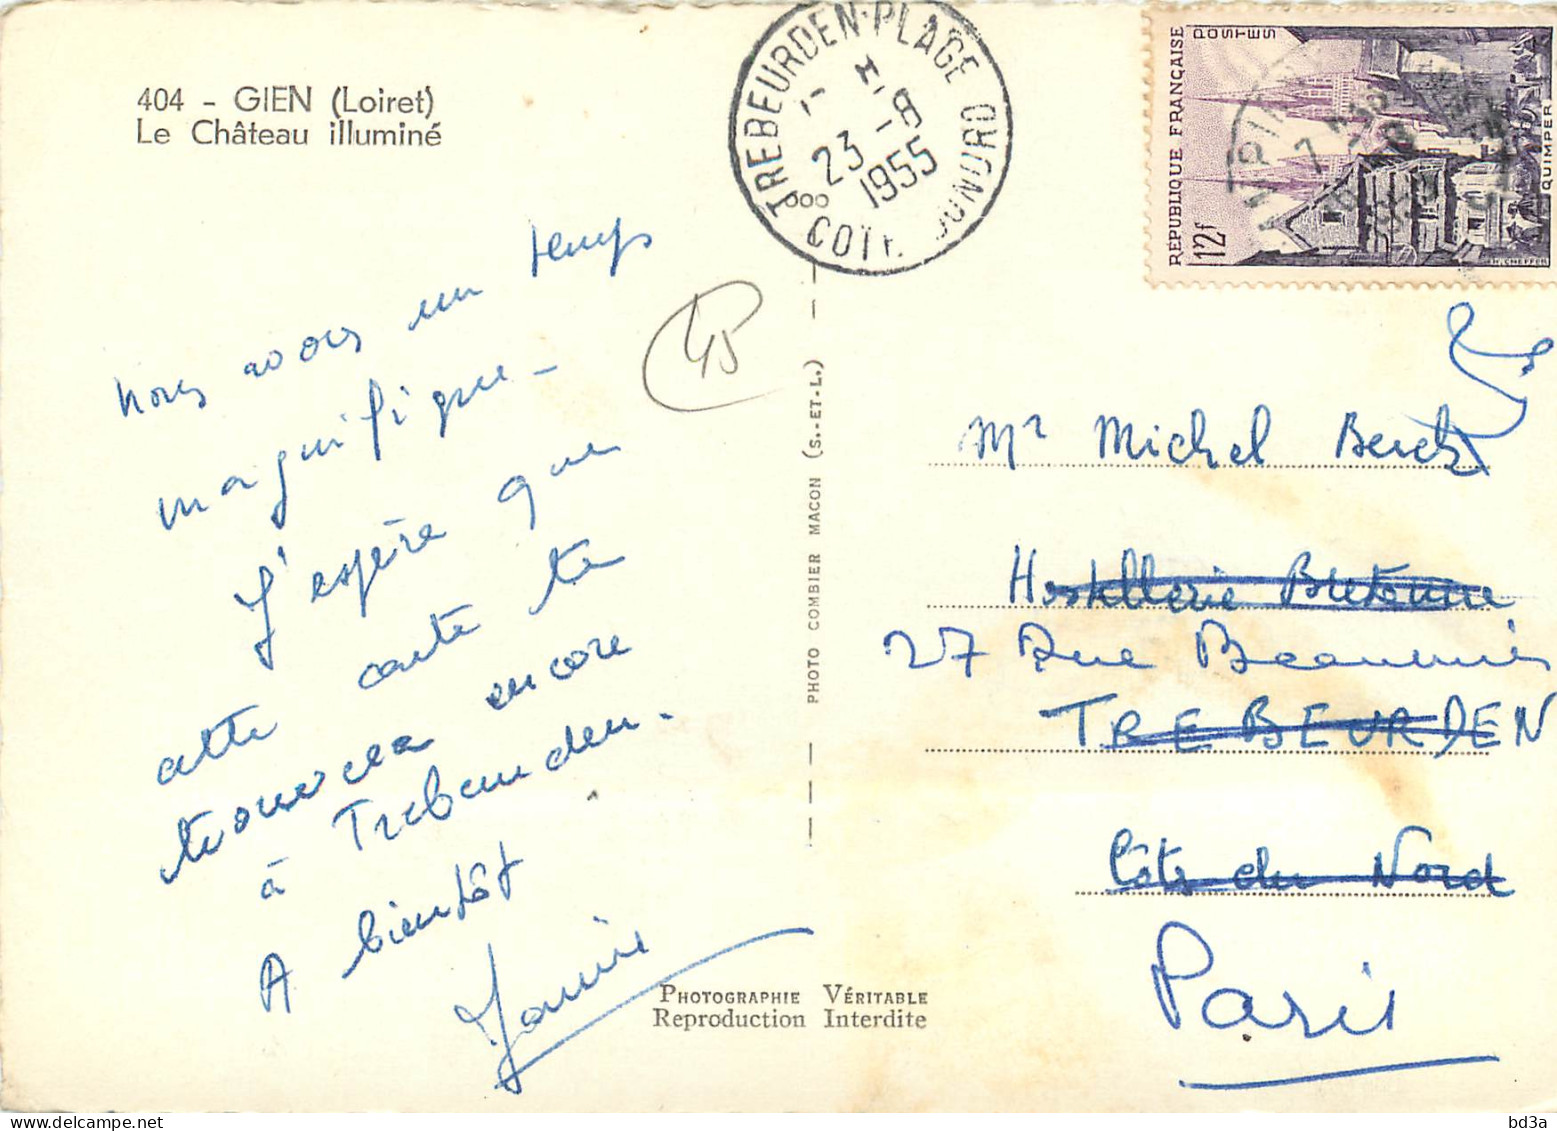 404 - GIEN (Loiret)
Le Château illuminé
TREBEURDEN-PLAGE
23 -8
1955
COTE DU NORD
RÉPUBLIQUE FRANÇAISE
POSTES
12f
QUIMPER
H. CHEFFER
45
Nous avons un temps
magnifique -
J'espère que
cette carte te
trouvera encore
à Trebeurden.
A bientôt
PHOTO COMBIER MACON (S.-ET-L.)
Mr Michel
Hostellerie Bretonne
27 Rue
TREBEURDEN
Côtes du Nord
Paris
PHOTOGRAPHIE VÉRITABLE
Reproduction Interdite
bd3a